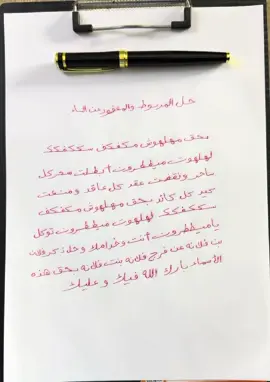 حل المربوط والمعقود عن النساء
بحق مهلهوش مكفكل سككفكك
لهلهوت ميططرون ابطلت سحر كل
ساحر ونقضت عقد كل عاقد ومنعت
كيد كل كائد بحق مهلهوش مكفكف
سككفكك لهلهوت ميططرون توكل
يا ميططرون أنت وخدامك وحل ذكر فلان
بن فلانة عن فرج فلانة بنت فلانة بحق هذه
الأسماء بارك الله فيك وعليك